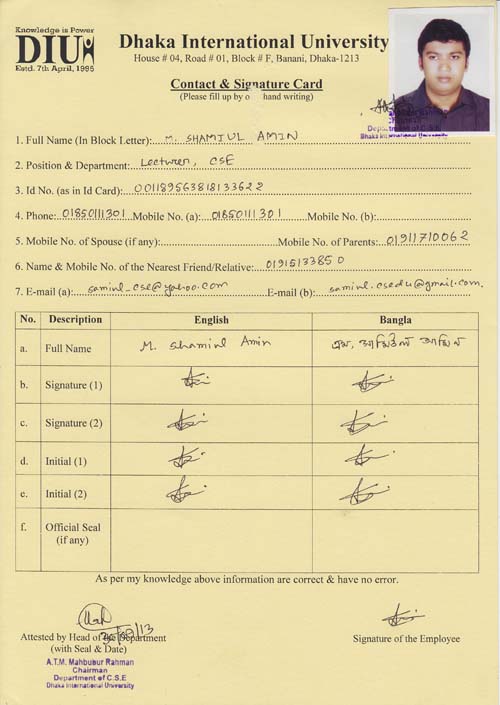 Knowledge is Power
DIU
Estd. 7th April, 1995
Dhaka International University
House # 04, Road # 01, Block # F, Banani, Dhaka-1213
Contact & Signature Card
(Please fill up by o hand writing)
Dhaka International University
1. Full Name (In Block Letter): M. SHAMIUL AMIN
2. Position & Department: Lecturer, CSE
3. Id No. (as in Id Card): 00118956381813 3622
4. Phone: 01850111301 Mobile No. (a): 01850111301 Mobile No. (b):
5. Mobile No. of Spouse (if any): Mobile No. of Parents: 01911710062
6. Name & Mobile No. of the Nearest Friend/Relative: 01915133850
7. E-mail (a): samiul_cse@yahoo.com E-mail (b): samiul.csedu@gmail.com
No. Description English Bangla
a. Full Name M. Shamiul Amin এম. শামিউল আমিন
b. Signature (1)
c. Signature (2)
d. Initial (1)
e. Initial (2)
f. Official Seal
(if any)
As per my knowledge above information are correct & have no error.
Attested by Head of the Department
(with Seal & Date)
Signature of the Employee
A.T.M. Mahbubur Rahman
Chairman
Department of C.S.E
Dhaka International University